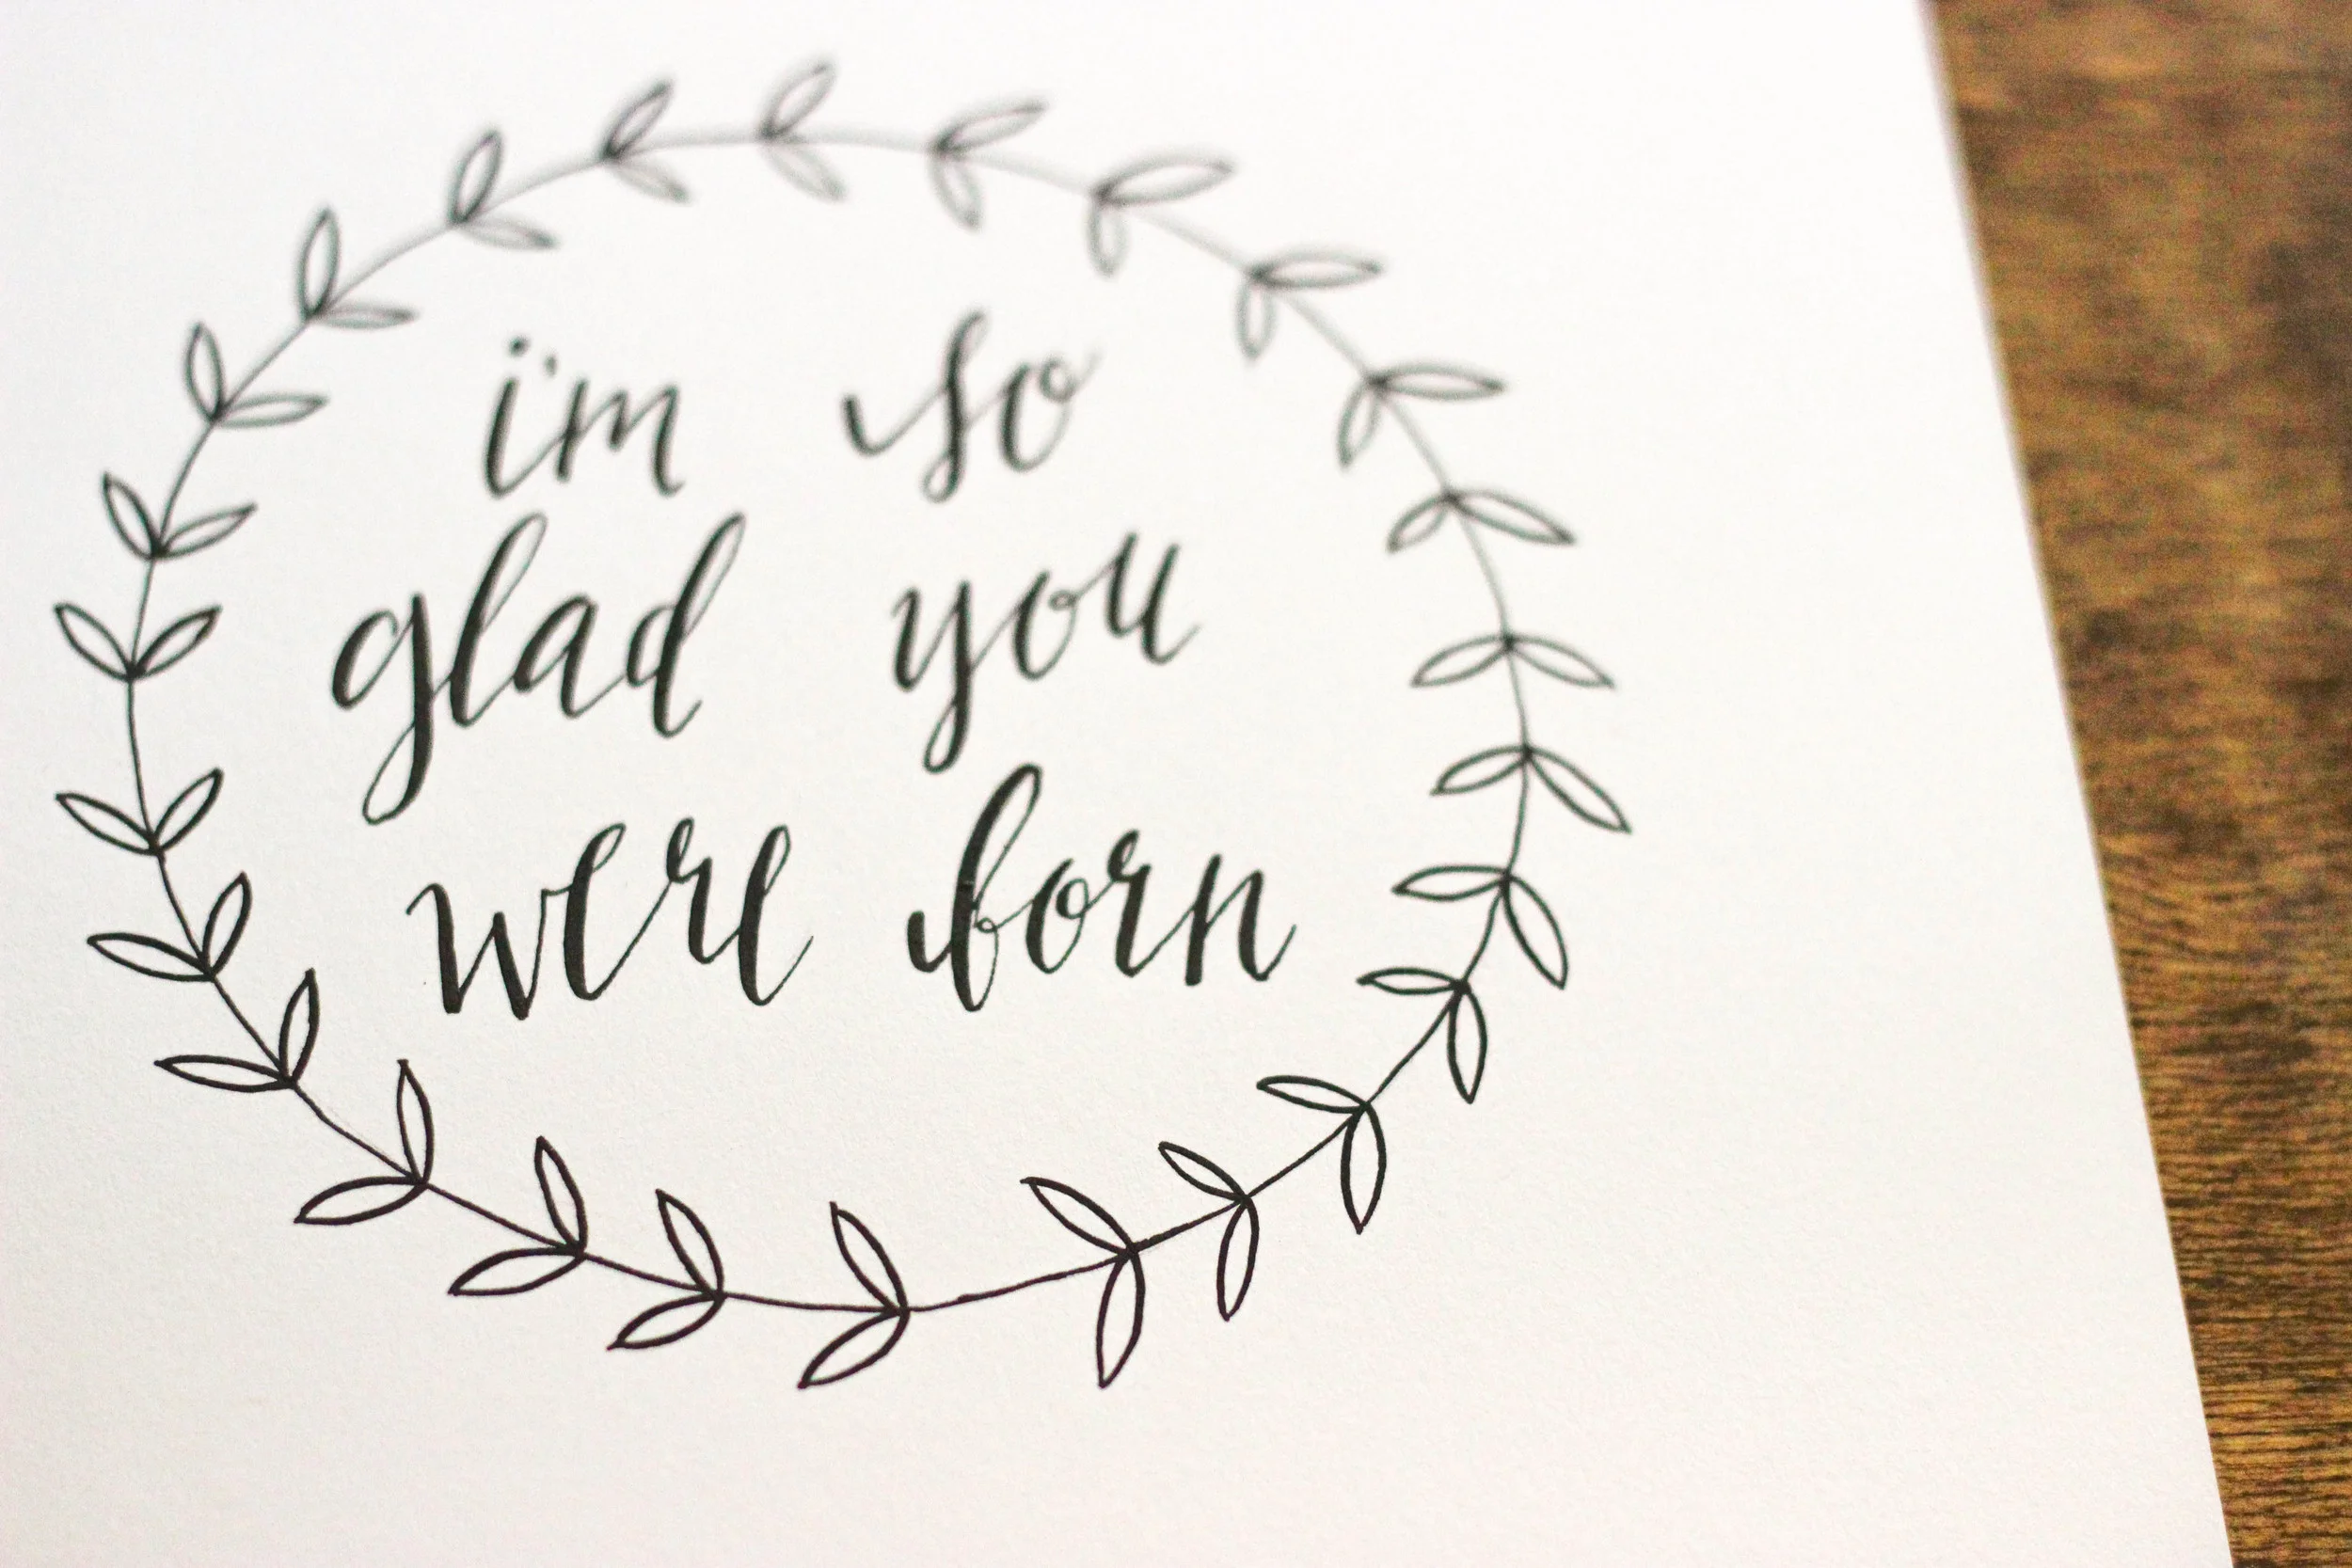 i'm so
glad you
were born